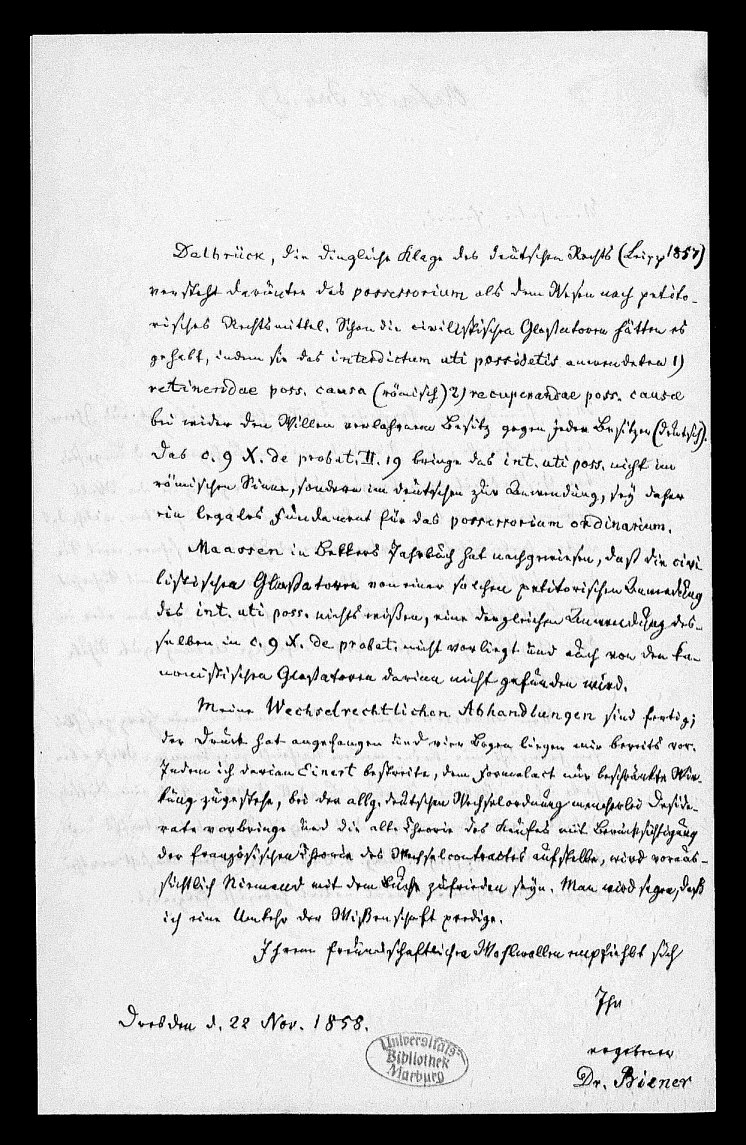 Delbrück, die dingliche Klage des deutschen Rechts (Leipz 1857)
versteht darunter das possessorium als dem Wesen nach petito-
risches Rechtsmittel. Schon die civilistischen Glossatoren hätten es
gehabt, indem sie das interdictum uti possidetis anwendeten 1)
retinendae poss. causa (römisch) 2) recuperandae poss. causa
bei wider den Willen verlohrenem Besitz gegen jeden Besitzer (deutsch).
Das c. 9 X. de probat. II. 19 bringe das int. uti poss. nicht im
römischen Sinne, sondern im deutschen zur Anwendung, sey daher
ein legales Fundament für das possessorium ordinarium.
Maassen in Bekkers Jahrbuch hat nachgewiesen, daß die civi
listischen Glossatoren von einer solchen petitorischen Anwendung
des int. uti poss. nichts wißen, eine dergleichen Anwendung des-
selben in c. 9 X. de probat. nicht vorliegt und auch von den ka-
nonistischen Glossatoren darinn nicht gefunden wird.
Meine Wechselrechtlichen Abhandlungen sind fertig;
der Druck hat angefangen und vier Bogen liegen mir bereits vor.
Indem ich darinn Einert bestreite, dem Formalact nur beschränkte Wir-
kung zugestehe, bei der allg. deutschen Wechselordnung mancherlei Deside-
rate vorbringe und die alte Theorie des Kaufes mit Berücksichtigung
der französischen Theorie des Wechselcontractes aufstelle, wird voraus-
sichtlich Niemand mit dem Buche zufrieden seyn. Man wird sagen, daß
ich eine Umkehr der Wißenschaft predige.
Ihrem freundschaftlichen Wohlwollen empfiehlt sich
Ihr
Dresden d. 22 Nov. 1858.
ergebener
Dr. Biener
Universitäts-
Bibliothek
Marburg